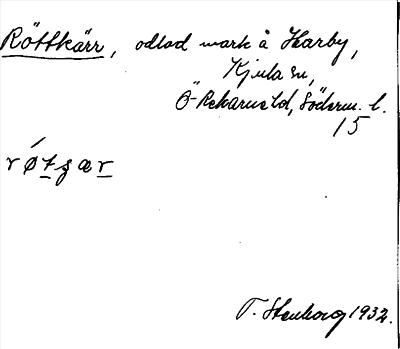 Röttkärr, odlad mark å Harby,
Kjula sn,
Ö-Rekarne hd, Söderm. l.
15
T. Stenborg 1932.